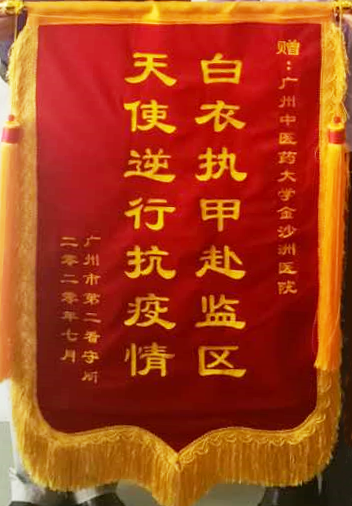 赠：广州中医药大学金沙洲医院
白衣执甲赴监区
天使逆行抗疫情
广州市第二看守所
二零二零年七月